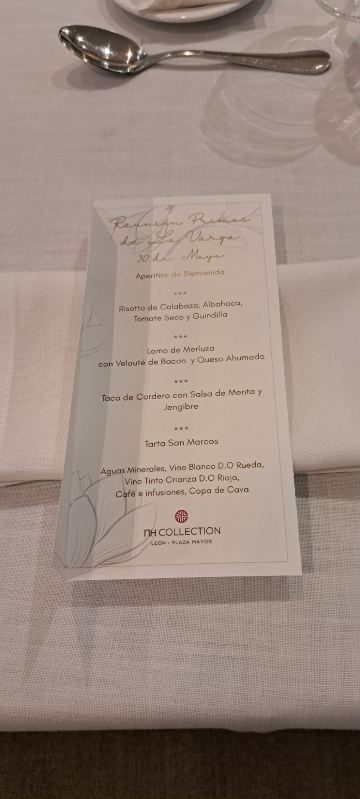 Reunión Primos
de La Varga
30 de Mayo
Aperitivo de Bienvenida
***
Risotto de Calabaza, Albahaca,
Tomate Seco y Guindilla
***
Lomo de Merluza
con Velouté de Bacon y Queso Ahumado
***
Taco de Cordero con Salsa de Menta y
Jengibre
***
Tarta San Marcos
Aguas Minerales, Vino Blanco D.O Rueda,
Vino Tinto Crianza D.O Rioja,
Café e infusiones, Copa de Cava
nH COLLECTION
LEÓN - PLAZA MAYOR